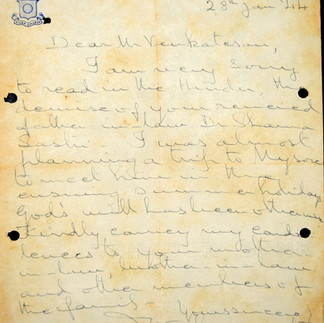 28th Jan 44
Dear Mr Venkatesan,
I am very sorry
to read in the Hindu, the
demise of your revered
father in-law D. Shama
Sastri. I was almost
planning a trip to Mysore
to meet him in the
ensuing summer holidays
God's will has been otherwise
Kindly convey my condo-
lences to your mother-
in-law, brother-in-law
and other members of
the family.
Yours sincerely